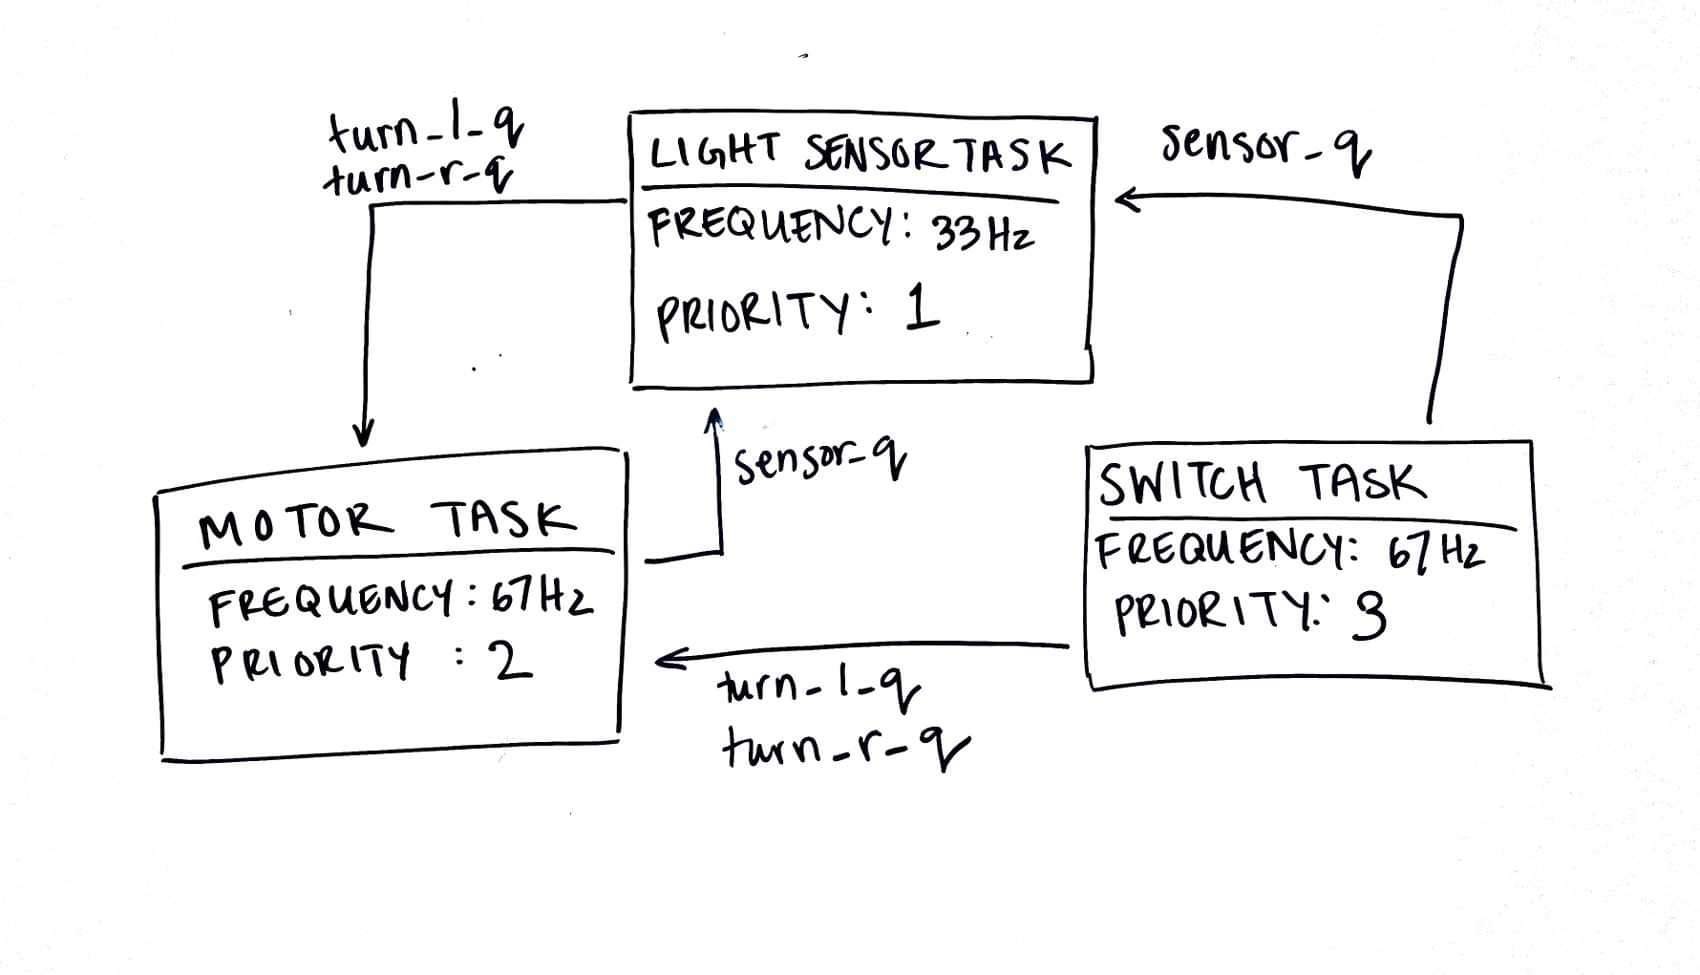 turn_l_q
turn_r_q
LIGHT SENSOR TASK
FREQUENCY: 33Hz
PRIORITY: 1
sensor_q
sensor_q
MOTOR TASK
FREQUENCY: 67Hz
PRIORITY : 2
SWITCH TASK
FREQUENCY: 67Hz
PRIORITY: 3
turn_l_q
turn_r_q